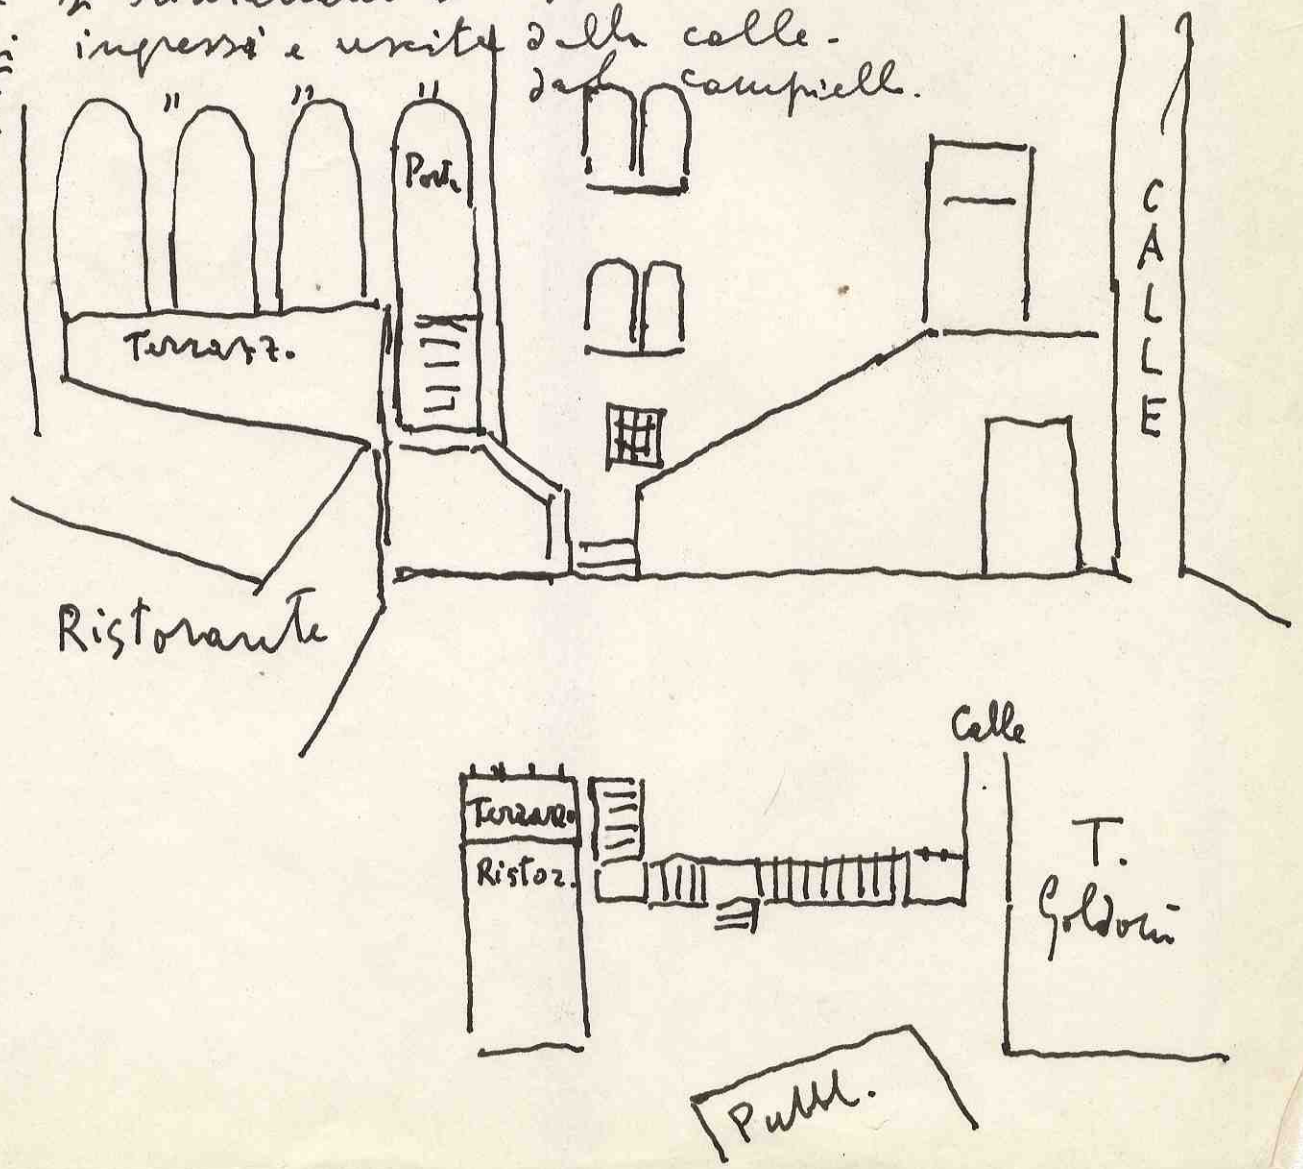 ingressi e uscite dalla calle -
dal campiello.
" " "
Porta
CALLE
Terrazz.
Ristorante
Calle
Terrazzo
Ristor.
T.
Goldoni
Pubbl.